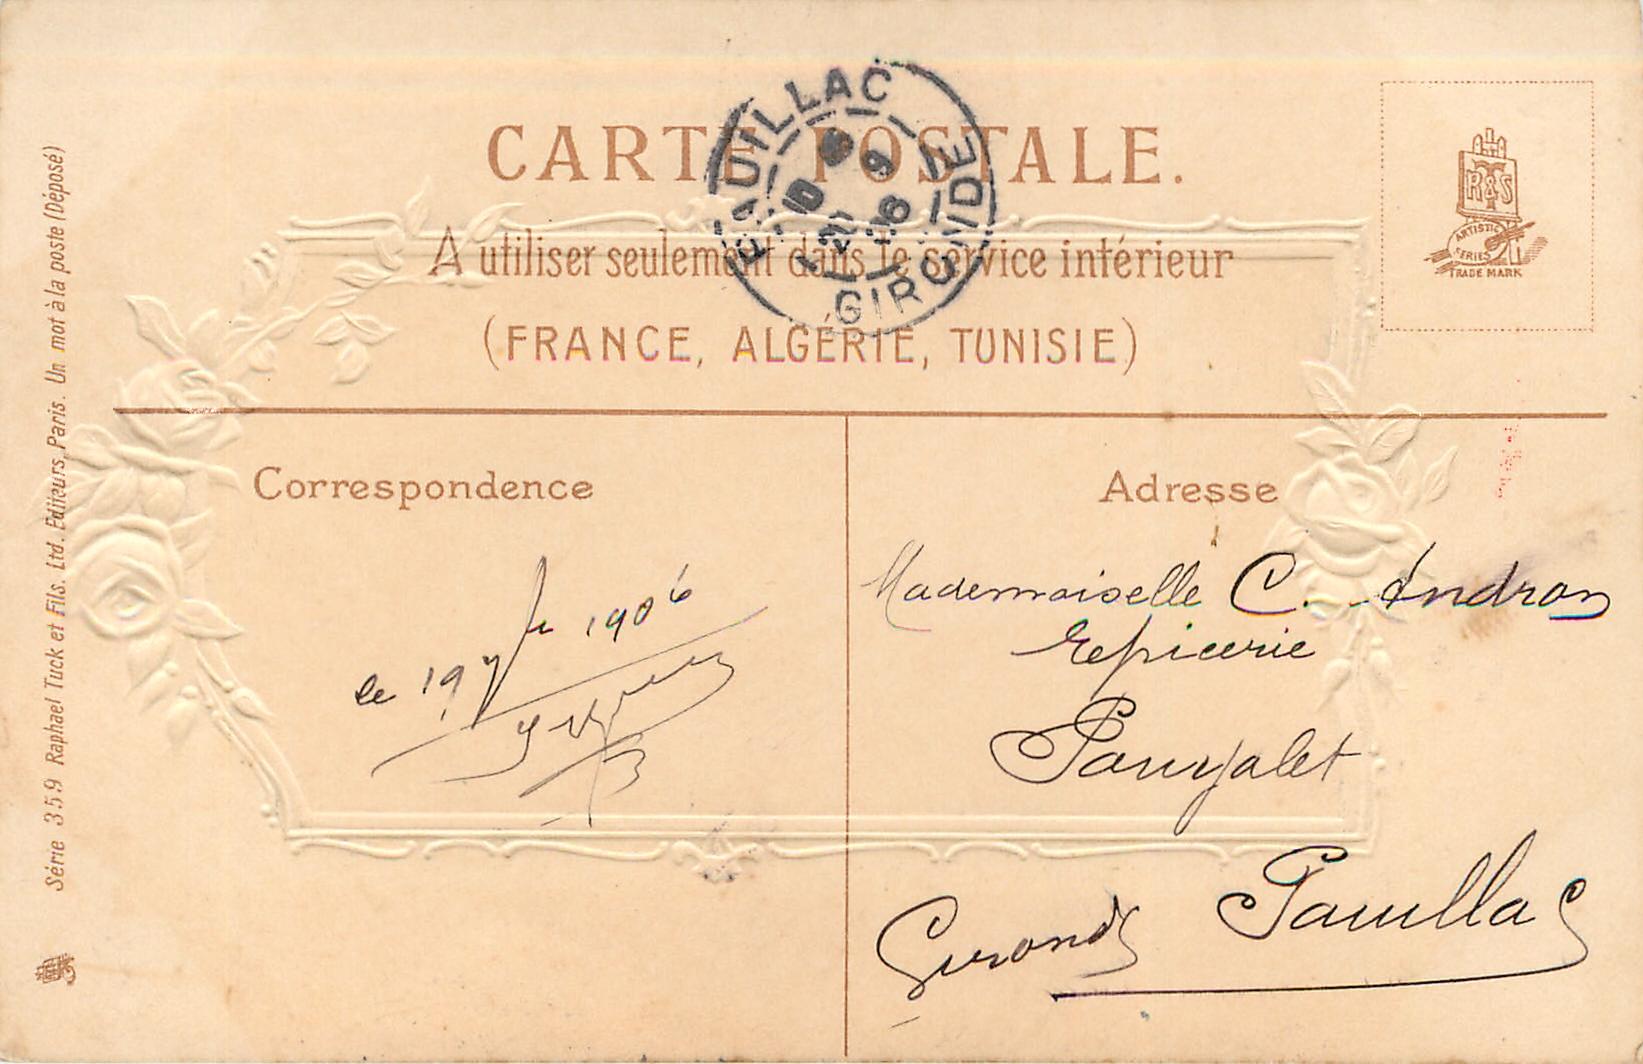 CARTE POSTALE.
PAUILLAC
GIRONDE
A utiliser seulement dans le service intérieur
(FRANCE, ALGÉRIE, TUNISIE)
R & S
ARTISTIC
SERIES
TRADE MARK
Série 359 Raphael Tuck et Fils. Ltd. Editeurs, Paris. Un mot à la poste (Déposé)
Correspondence
le 19 1906
Adresse
Mademoiselle C. Andron
Epicerie
Pouyalet
Pauillac
Gironde